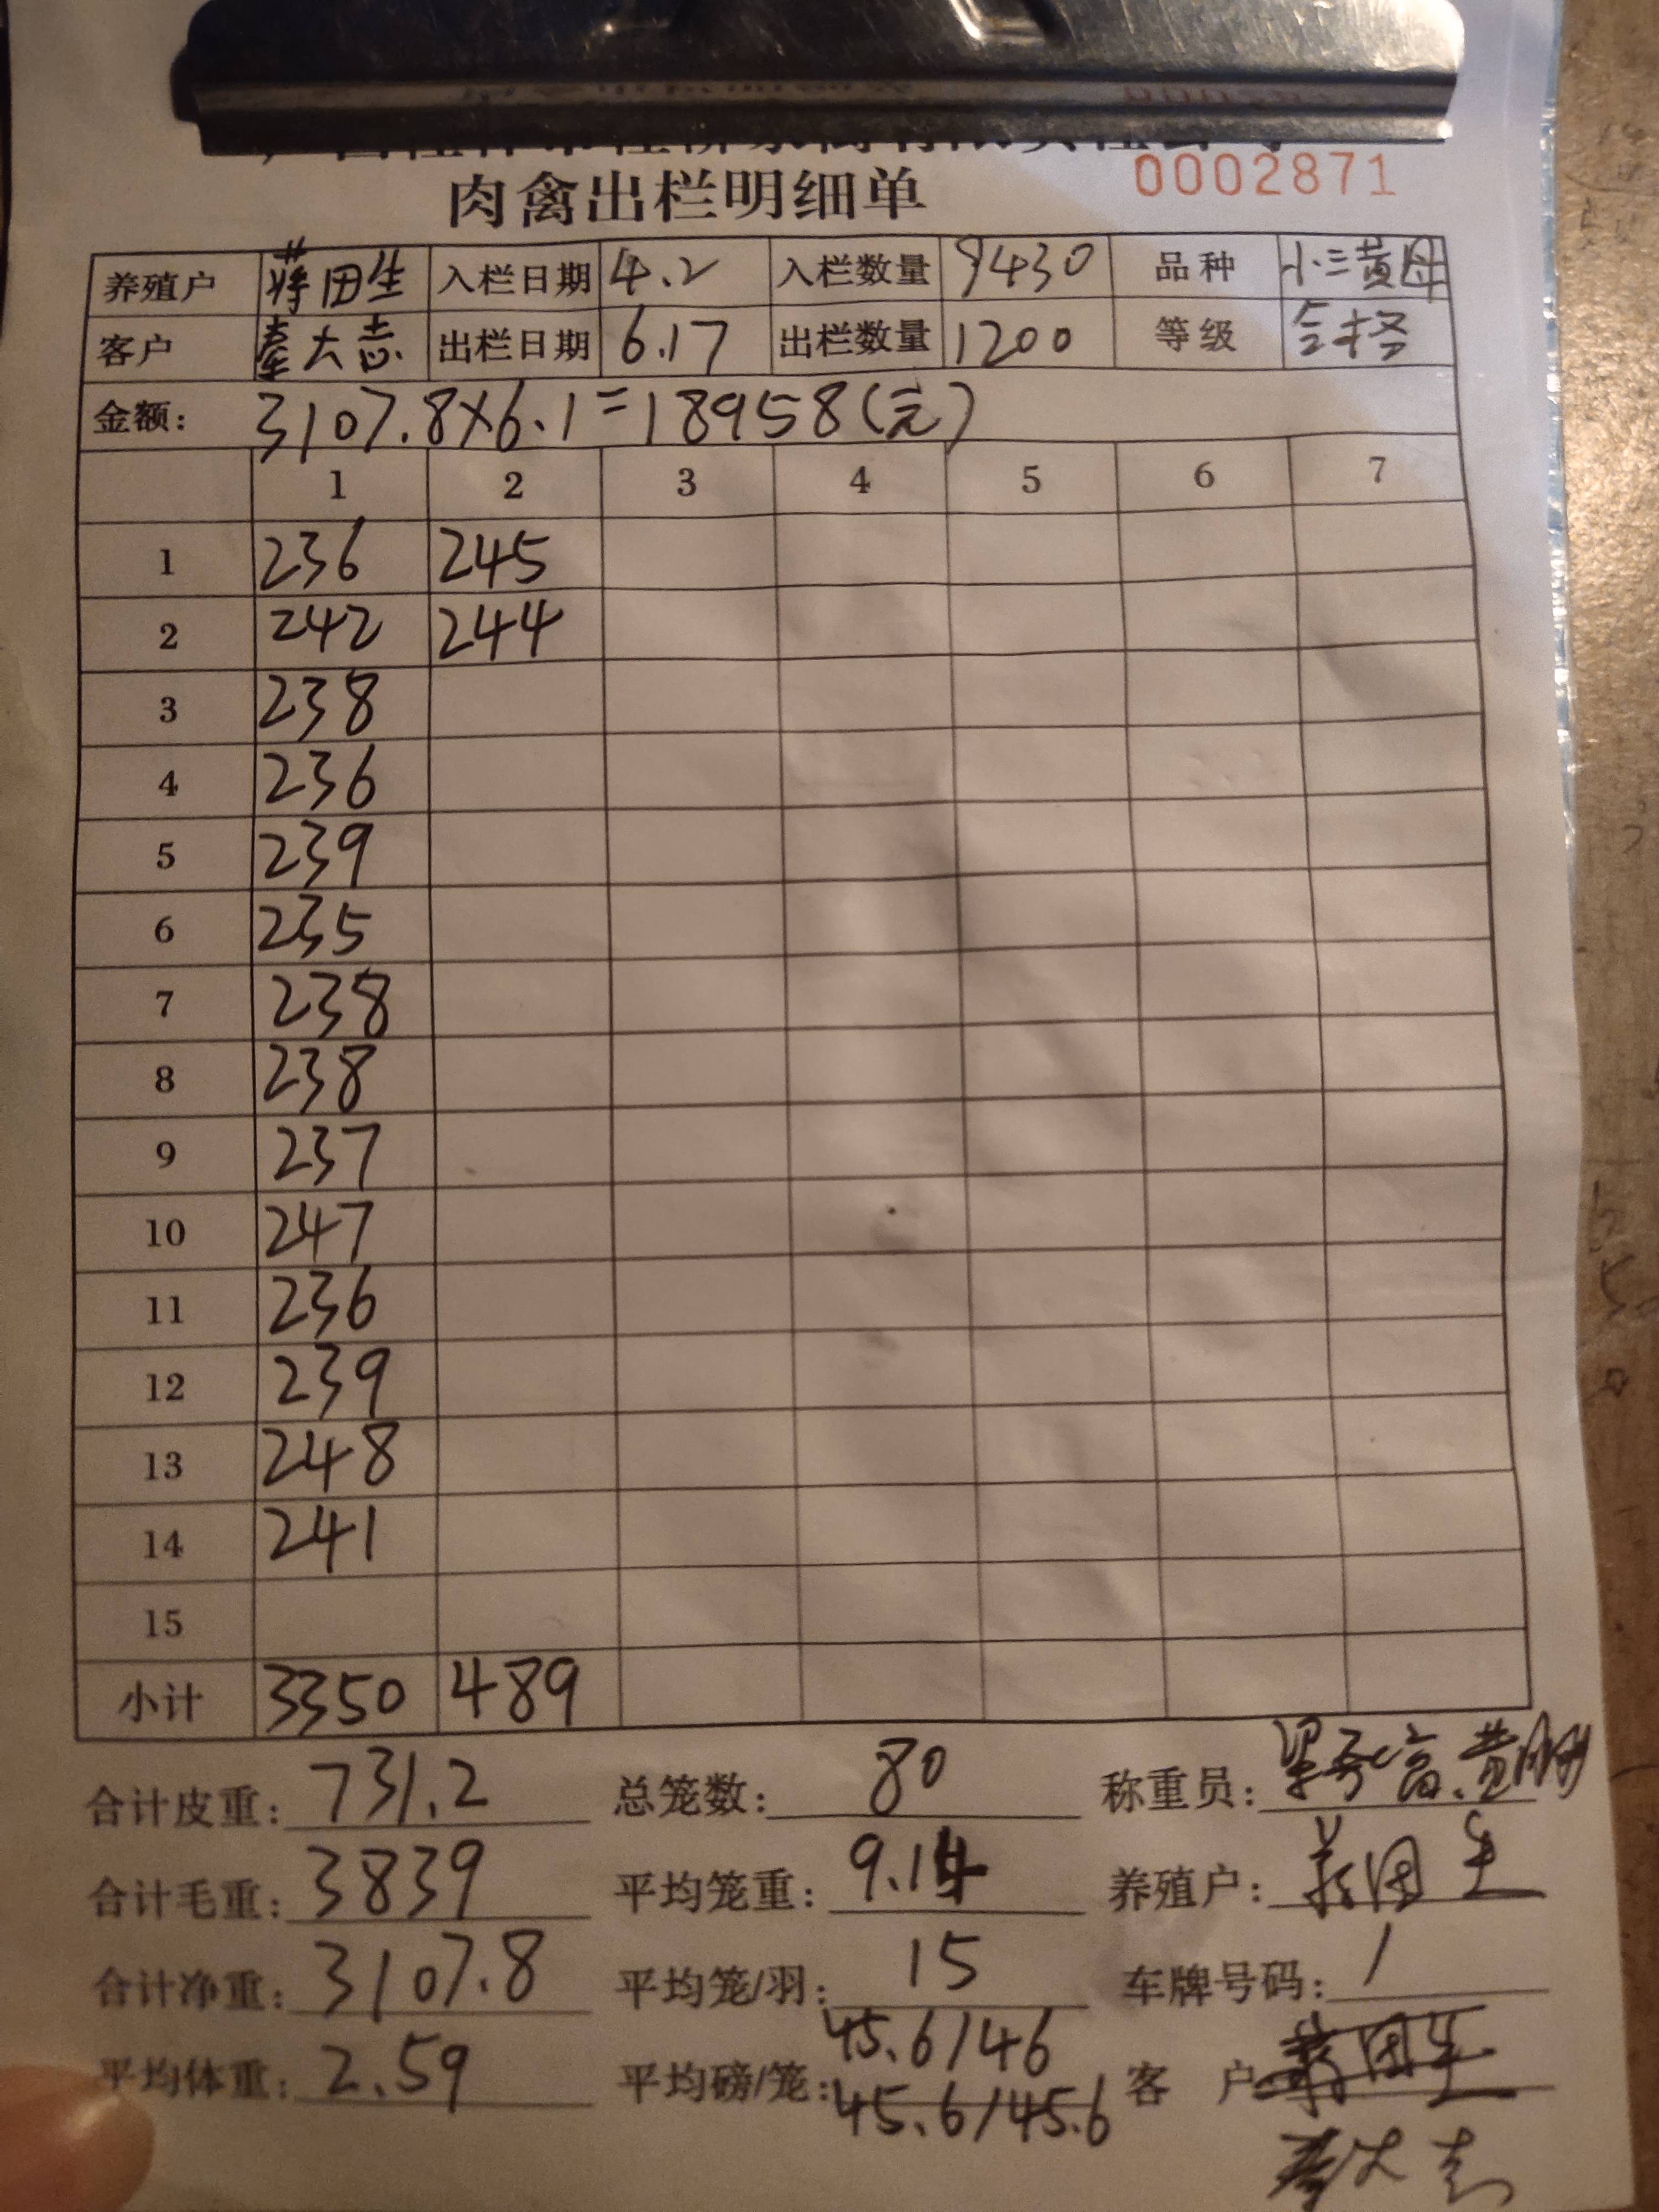 0002871
肉禽出栏明细单
养殖户 蒋田生 入栏日期 4.2 入栏数量 9430 品种 小三黄母
客户 秦大志 出栏日期 6.17 出栏数量 1200 等级 合格
金额: 3107.8×6.1=18958(元)
1 2 3 4 5 6 7
1 236 245
2 242 244
3 238
4 236
5 239
6 235
7 238
8 238
9 237
10 247
11 236
12 239
13 248
14 241
15
小计 3350 489
合计皮重: 731.2 总笼数: 80 称重员:
合计毛重: 3839 平均笼重: 9.14 养殖户: 蒋田生
合计净重: 3107.8 平均笼/羽: 15 车牌号码: /
45.6/46
平均体重: 2.59 平均磅/笼: 45.6/45.6 客户
秦大志